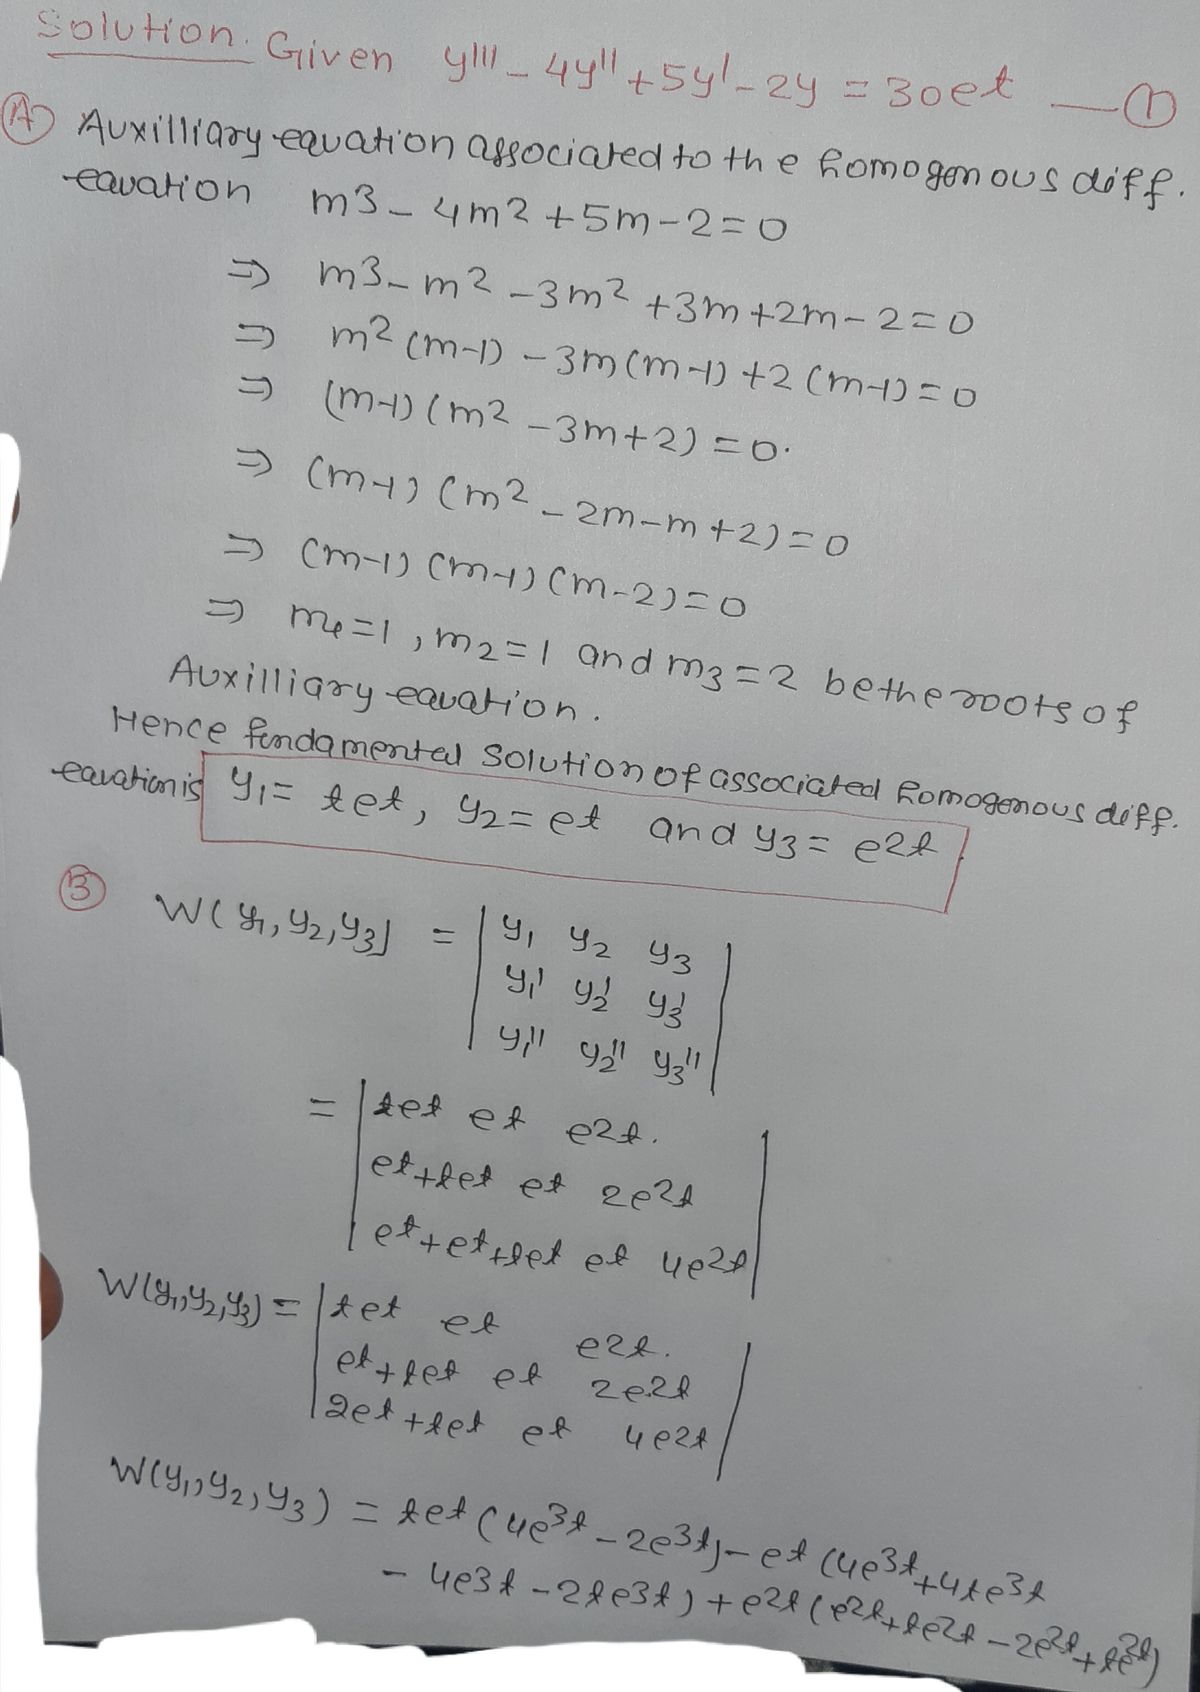 Solution. Given y''' - 4y'' + 5y' - 2y = 30et — ①
Ⓐ Auxilliary equation associated to the homogenous diff.
equation m3 - 4m2 + 5m - 2 = 0
⇒ m3 - m2 - 3m2 + 3m + 2m - 2 = 0
⇒ m2 (m-1) - 3m (m-1) + 2 (m-1) = 0
⇒ (m-1) (m2 - 3m + 2) = 0.
⇒ (m-1) (m2 - 2m - m + 2) = 0
⇒ (m-1) (m-1) (m-2) = 0
⇒ m1 = 1, m2 = 1 and m3 = 2 be the roots of
Auxilliary equation.
Hence fundamental solution of associated homogenous diff.
equation is y1 = tet, y2 = et and y3 = e2t.
Ⓑ W(y1, y2, y3) = | y1 y2 y3 |
| y1' y2' y3' |
| y1'' y2'' y3'' |
= | tet et e2t. |
| et+tet et 2e2t |
| et+et+tet et 4e2t |
W(y1,y2,y3) = | tet et e2t. |
| et+tet et 2e2t |
| 2et+tet et 4e2t |
W(y1,y2,y3) = tet (4e3t - 2e3t) - et (4e3t + 4te3t
- 4e3t - 2te3t) + e2t (e2t + te2t - 2e2t + te2t)